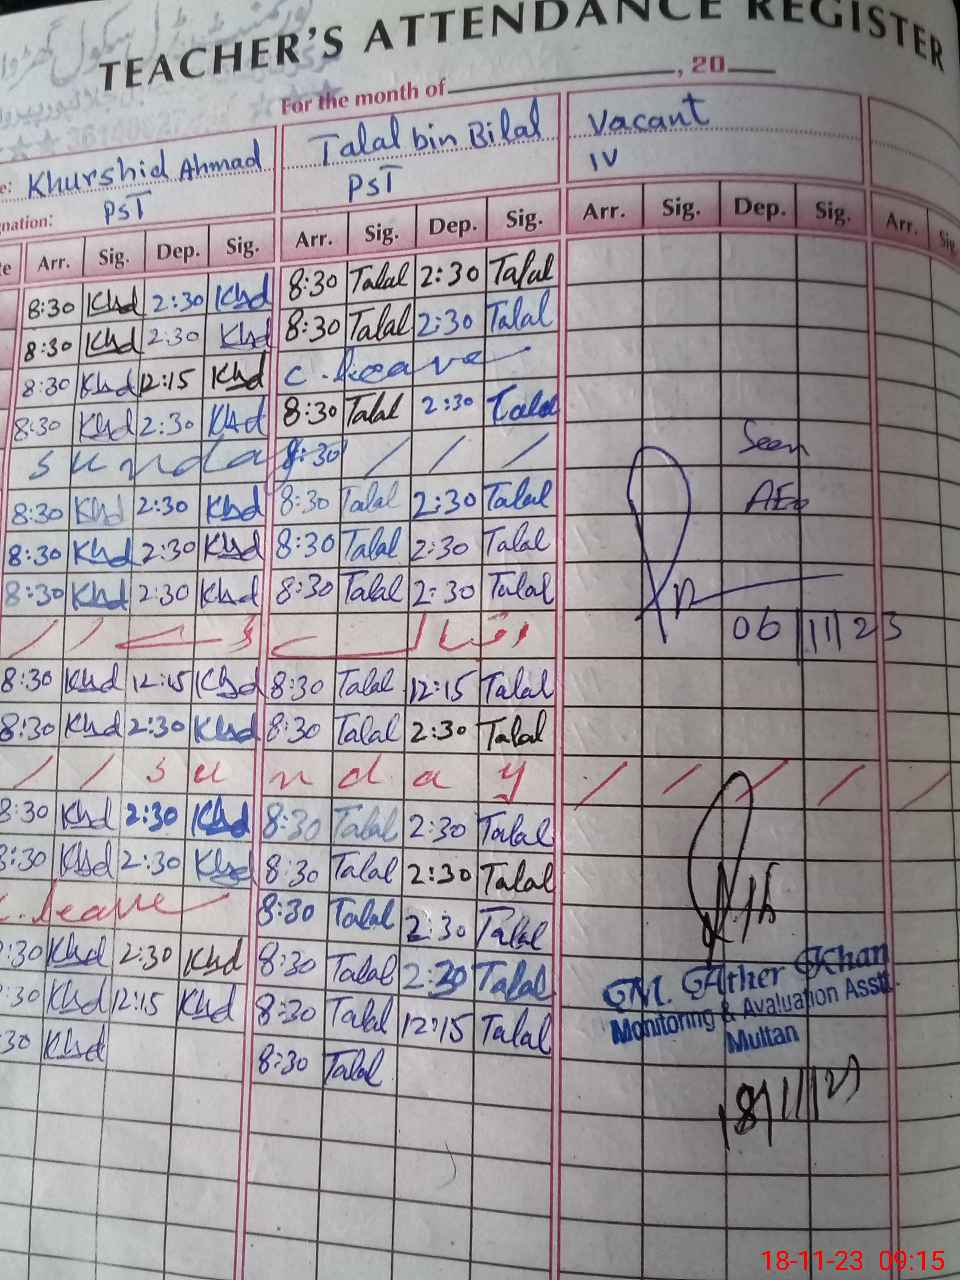 TEACHER'S ATTENDANCE REGISTER
For the month of ____, 20__
e: Khurshid Ahmad Talal bin Bilal Vacant
gnation: PST PST IV
te Arr. Sig. Dep. Sig. Arr. Sig. Dep. Sig. Arr. Sig. Dep. Sig. Arr. Sig.
8:30 Khd 2:30 Khd 8:30 Talal 2:30 Talal
8:30 Khd 2:30 Khd 8:30 Talal 2:30 Talal
8:30 Khd 12:15 Khd C. leave
8:30 Khd 2:30 Khd 8:30 Talal 2:30 Talal
Sunday 8:30 / / /
Seen
8:30 Khd 2:30 Khd 8:30 Talal 2:30 Talal
AEO
8:30 Khd 2:30 Khd 8:30 Talal 2:30 Talal
8:30 Khd 2:30 Khd 8:30 Talal 2:30 Talal
06/11/23
8:30 Khd 12:15 Khd 8:30 Talal 12:15 Talal
8:30 Khd 2:30 Khd 8:30 Talal 2:30 Talal
/ / S u n d a y / / / / /
8:30 Khd 2:30 Khd 8:30 Talal 2:30 Talal
8:30 Khd 2:30 Khd 8:30 Talal 2:30 Talal
C. leave 8:30 Talal 2:30 Talal
:30 Khd 2:30 Khd 8:30 Talal 2:30 Talal
:30 Khd 12:15 Khd 8:30 Talal 12:15 Talal
30 Khd 8:30 Talal
M. Ather Khan
Monitoring & Evaluation Asstt.
Multan
18/11/23
18-11-23 09:15